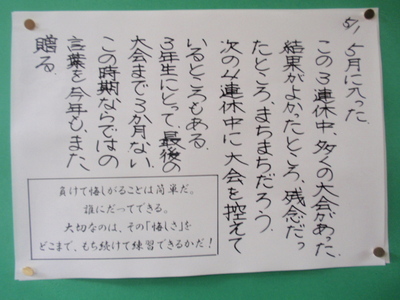 5/1
5月に入った。
この3連休中、多くの大会があった。
結果がよかったところ、残念だっ
たところ、まちまちだろう。
次の4連休中に大会を控えて
いるところもある。
3年生にとって、最後の
大会まで3か月ない。
この時期ならではの
言葉を今年も、また、
贈る。
負けて悔しがることは簡単だ。
誰にだってできる。
大切なのは、その「悔しさ」を
どこまで、もち続けて練習できるかだ！